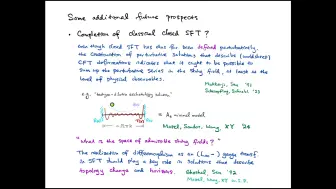 Some additional future prospects
• Completion of classical closed SFT?
Even though closed SFT has thus far been defined perturbatively,
the construction of perturbative solutions that describe (undeformed)
CFT deformations indicates that it ought to be possible to
sum up the perturbative series in the string field, at least at the
level of physical observables.
Mukherji, Sen '91
e.g.
= A∞ minimal model
Mazel, Sandor, Wang, XY '24
"What is the space of admissible string fields?"
The realization of diffeomorphism as
in SFT should play a key role in solutions that describe
topology change and horizons.
Ghoshal, Sen '92
Mazel, Wang, XY